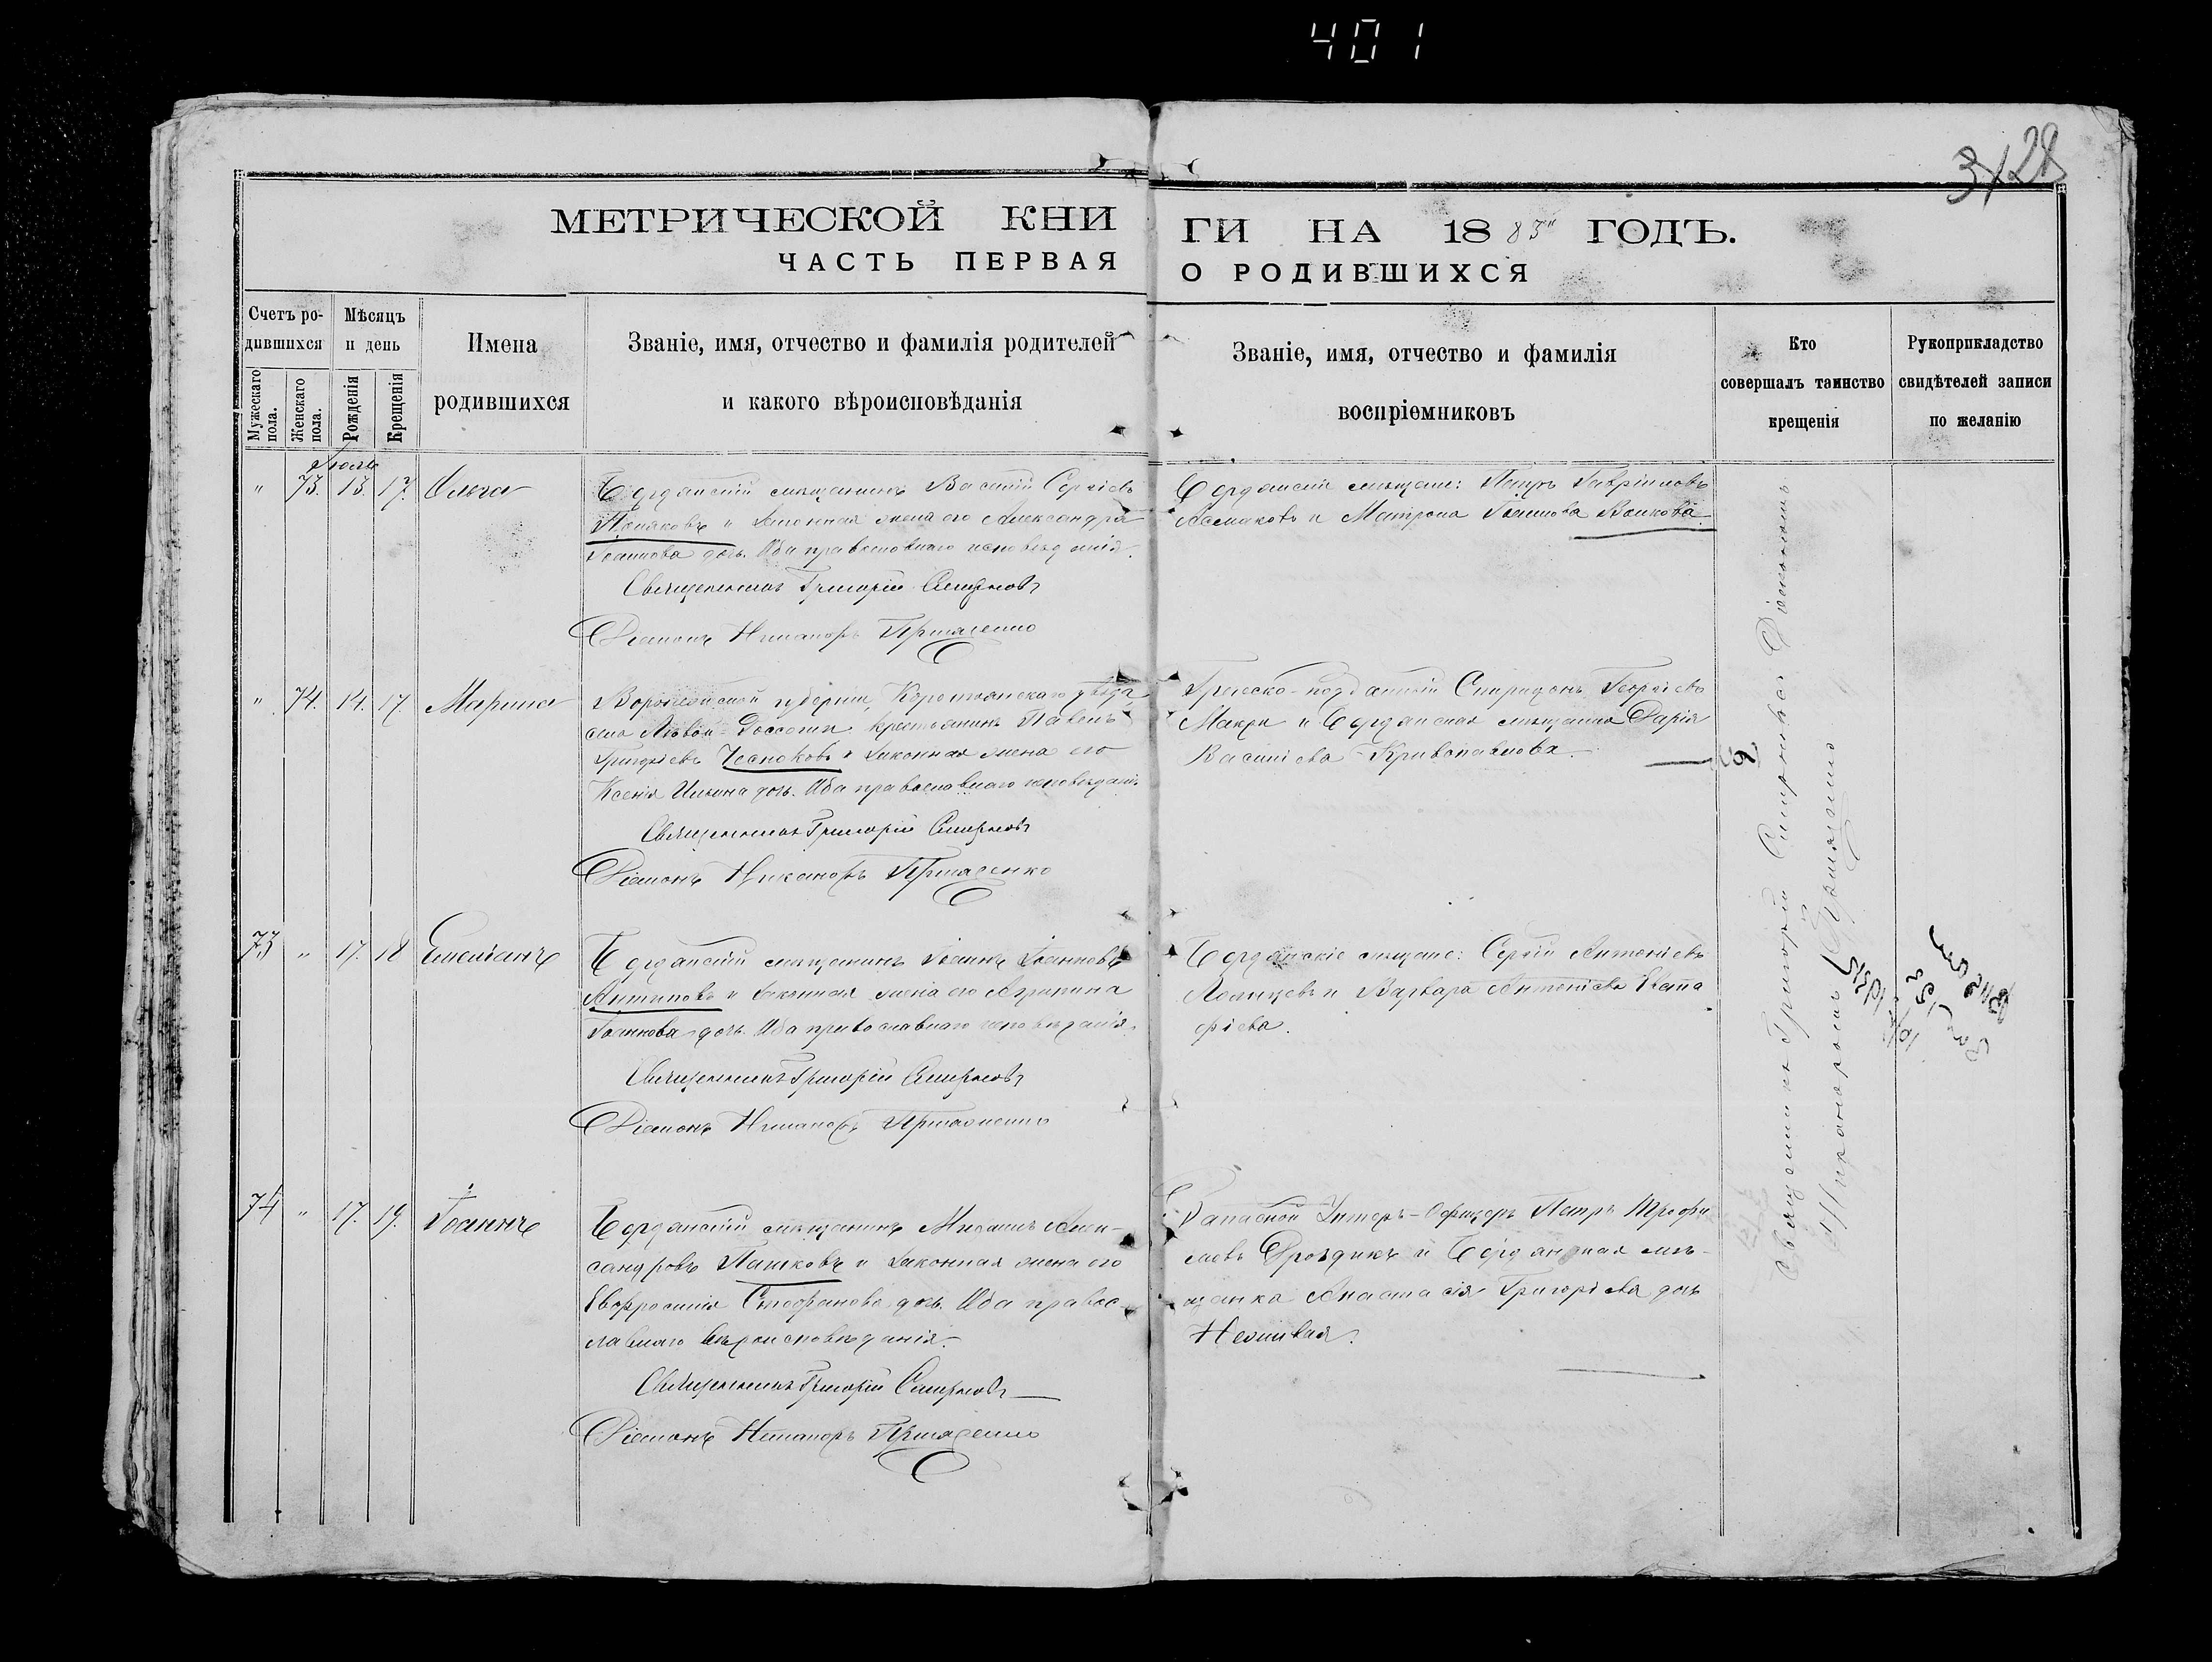 401
28
МЕТРИЧЕСКОЙ КНИ
ГИ НА 1885 ГОДЪ.
ЧАСТЬ ПЕРВАЯ
О РОДИВШИХСЯ
Счетъ ро-
дившихся
Мужескаго
пола.
Женскаго
пола.
Мѣсяцъ
и день
Рожденія
Крещенія
Имена
родившихся
Званіе, имя, отчество и фамилія родителей
и какого вѣроисповѣданія
Званіе, имя, отчество и фамилія
воспріемниковъ
Кто
совершалъ таинство
крещенія
Рукоприкладство
свидѣтелей записи
по желанію
" 73. 13. 17. Ольга
Бердянскій мѣщанинъ Василій Сергіевъ
и законная жена его Александра
Іоаннова дочь. Оба православнаго исповѣданія.
Священникъ Григорій Смирновъ
Діаконъ Никаноръ
Бердянскіе мѣщане: Петръ Гавріиловъ
и Матрона Іоаннова Волкова
" 74. 14. 17. Марина
Воронежской губерніи, Коротоякскаго уѣзда
села Россоши крестьянинъ Павелъ
Григоріевъ Чесноковъ и законная жена его
Ксенія Ильина дочь. Оба православнаго исповѣданія
Священникъ Григорій Смирновъ
Діаконъ Никаноръ
Греческо-подданный Спиридонъ Георгіевъ
Макри и Бердянская мѣщанка Дарія
Василіева
73 " 17. 18 Емеліанъ
Бердянскій мѣщанинъ Іоаннъ Іоанновъ
Антиповъ и законная жена его Агрипина
Іоаннова дочь. Оба православнаго исповѣданія.
Священникъ Григорій Смирновъ
Діаконъ Никаноръ
Бердянскіе мѣщане: Сергій Антоніевъ
и Варвара Антоніева Евста
фіева.
74 " 17. 19. Іоаннъ
Бердянскій мѣщанинъ Михаилъ Алек-
сандровъ Пашковъ и законная жена его
Евфросинія Стефанова дочь. Оба правос-
лавнаго вѣроисповѣданія.
Священникъ Григорій Смирновъ
Діаконъ Никаноръ
Запасной Унтеръ-Офицеръ Петръ Трофи
мовъ Дроздикъ и Бердянская мѣ-
щанка Анастасія Григоріева дочь
Священникъ Григорій Смирновъ съ Діакономъ
Никаноромъ